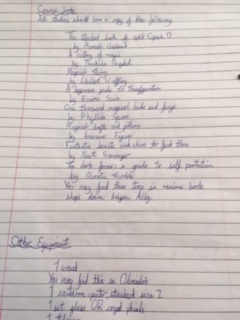 Course books
All students should have a copy of the following
The standard book of spells (grade 1)
by Miranda Goshawk
A history of magic
by Bathilda Bagshot
Magical theory
by Adalbert Waffling
A beginners guide to transfiguration
by Emeric Switch
One thousand magical herbs and fungi
by Phyllida Spore
Magical drafts and potions
by Arsenius Jigger
Fantastic beasts and where to find them
by Newt Scamander
The dark forces: a guide to self protection
by Quentin Trimble
You may find these items in
shops down Diagon Alley.
Other Equipment
1 wand
You may find this in Olivanders
1 cauldron - pewter, standard size 2
1 set glass OR crystal phials
1